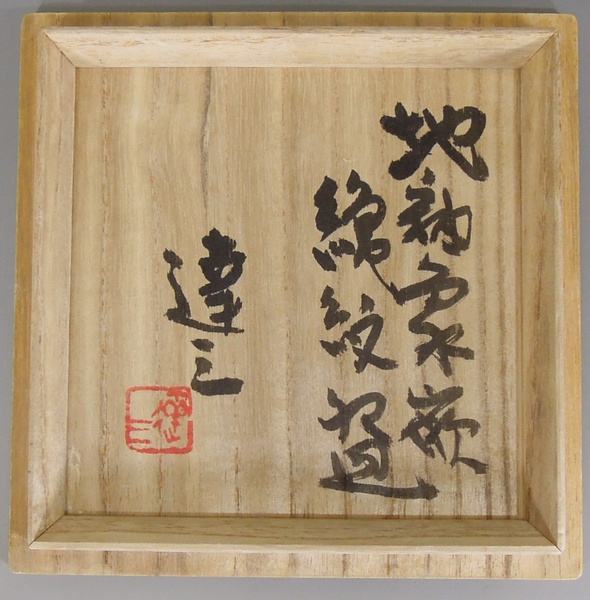 地釉象嵌
縄紋盌
達三